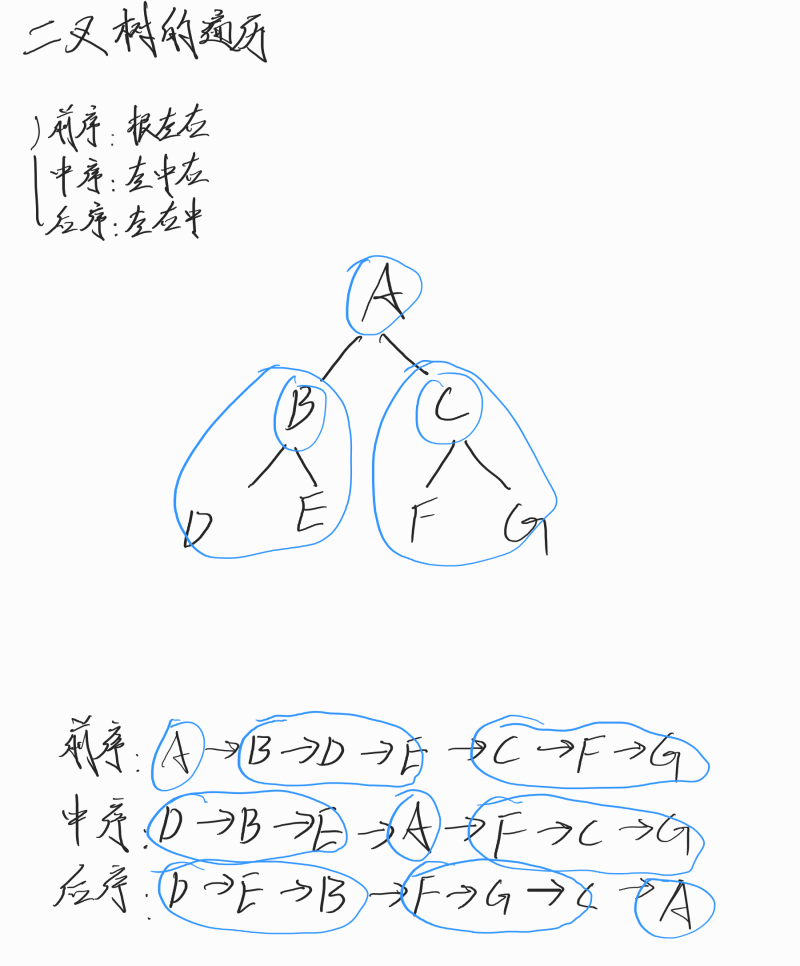 二叉树的遍历
前序：根左右
中序：左中右
后序：左右中
A
B C
D E F G
前序：A→B→D→E→C→F→G
中序：D→B→E→A→F→C→G
后序：D→E→B→F→G→C→A